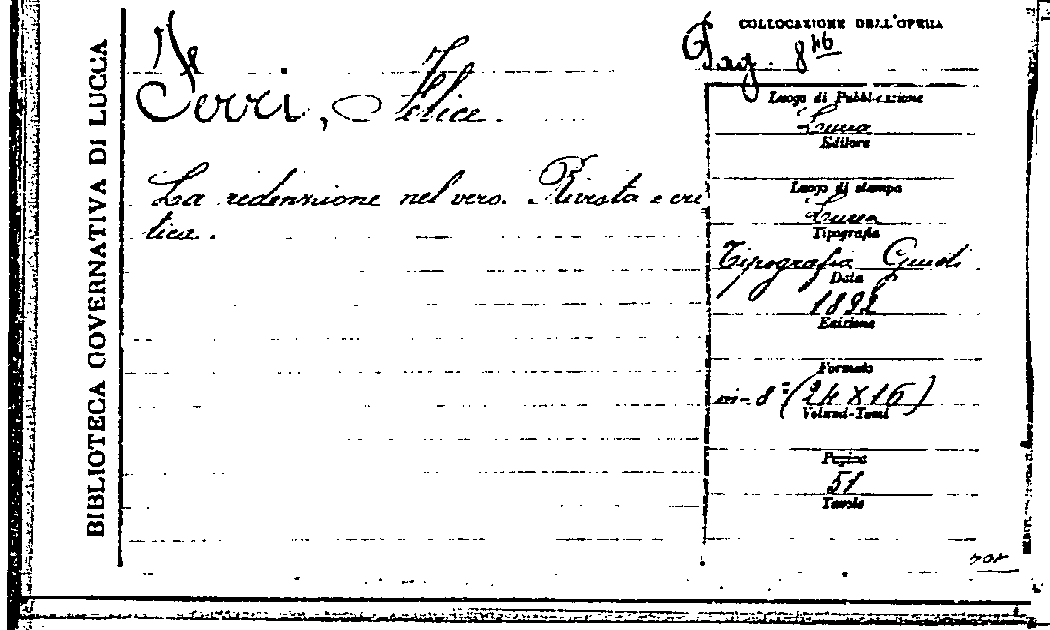 BIBLIOTECA GOVERNATIVA DI LUCCA
COLLOCAZIONE DELL'OPERA
Ferri, Felice.
La redenzione nel vero. Rivista e cri
tica.
Luogo di Pubblicazione
Lucca
Editore
Luogo di stampa
Lucca
Tipografia
Tipografia Giusti
Data
1892
Edizione
Formato
in-8° (24 X 16)
Volumi-Tomi
Pagine
51
Tavole